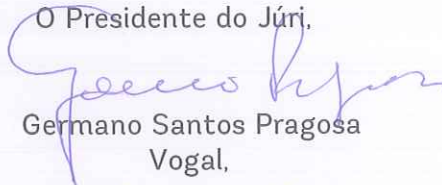 O Presidente do Júri,
Germano Santos Pragosa
Vogal,